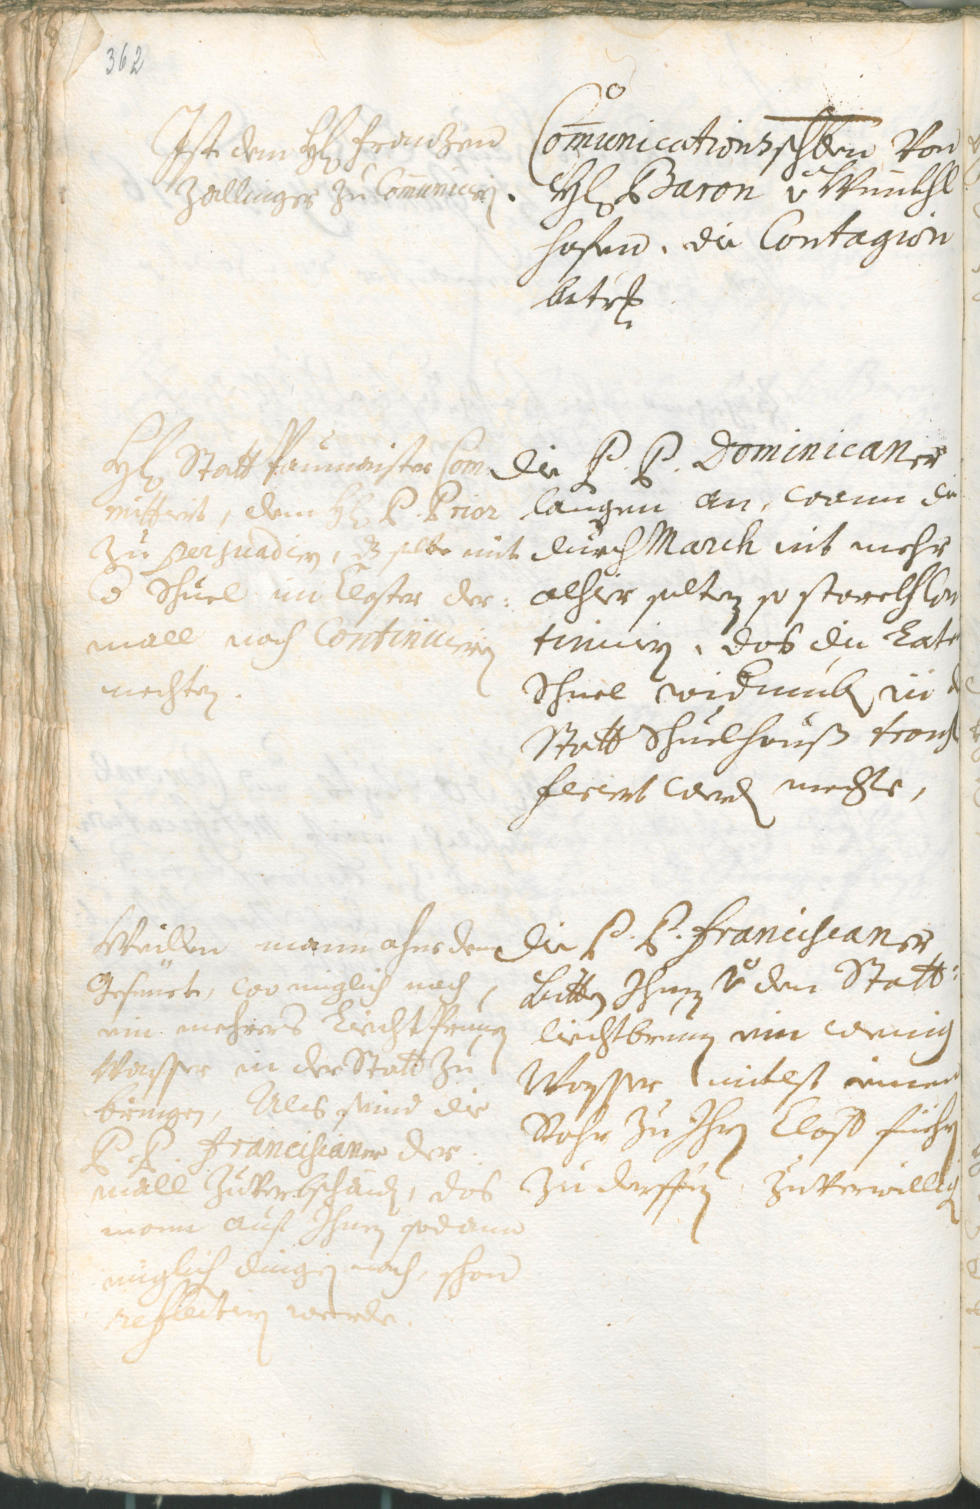 362
Ist dem H: Franzen
Zallinger zu Communicirn.
Communications schreiben Von
H: Baron v Winkhl
hofen. die Contagion
betr:
H: Statt Paumaister Com
mittirt, dem H: P. Prior
zu persuadirn, dz selbe mit
d Schuel im Closter der:
mall noch Continuirn
mechten.
die P. P. Dominicaner
langen an, wann die
durch March nit mehr
alhier solten so starckh Con
tinuirn, das die Late
Schuel widrumb in d
Statt Schuelhauß trans
feriert werden mechte,
Weillen mann ohne dem
Gesünet, wo miglich noch,
ein mehrers Liechtprunen
Wasser in der Statt zu
bringen, Als seind die
P. P. Franciscaner der
mall zuverbschaiden, das
mann auf Ihnen sodann
miglich dingen nach, schon
reflectirn werde.
die P. P. Franciscaner
bitten Ihnen v den Statt:
liechtbrunen ein wenig
Wasser mitlst einen
Rohr zu Ihren Closter fiehren
zu derffen zuverwilligen